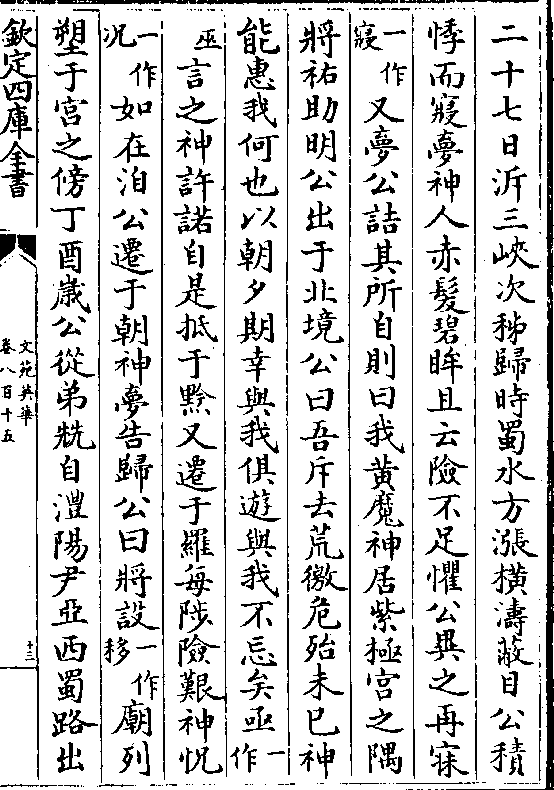 二十七日泝三峽次秭歸時蜀水方漲橫濤蔽目公積
悸而寢夢神人赤髮碧眸且云險不足懼公異之再寐
一作寢又夢公詰其所自則曰我黃魔神居紫極宮之隅
將祐助明公出于北境公曰吾斥去荒徼危殆未已神
能惠我何也以朝夕期幸與我俱遊與我不忘矣亟一作
巫言之神許諾自是抵于黔又遷于羅每陟險艱神怳
一作况如在洎公遷于朝神夢告歸公曰將設一作移廟列
塑于宮之傍丁酉歲公從弟兟自澧陽尹亞西蜀路出
欽定四庫全書
文苑英華
卷八百十五
十三